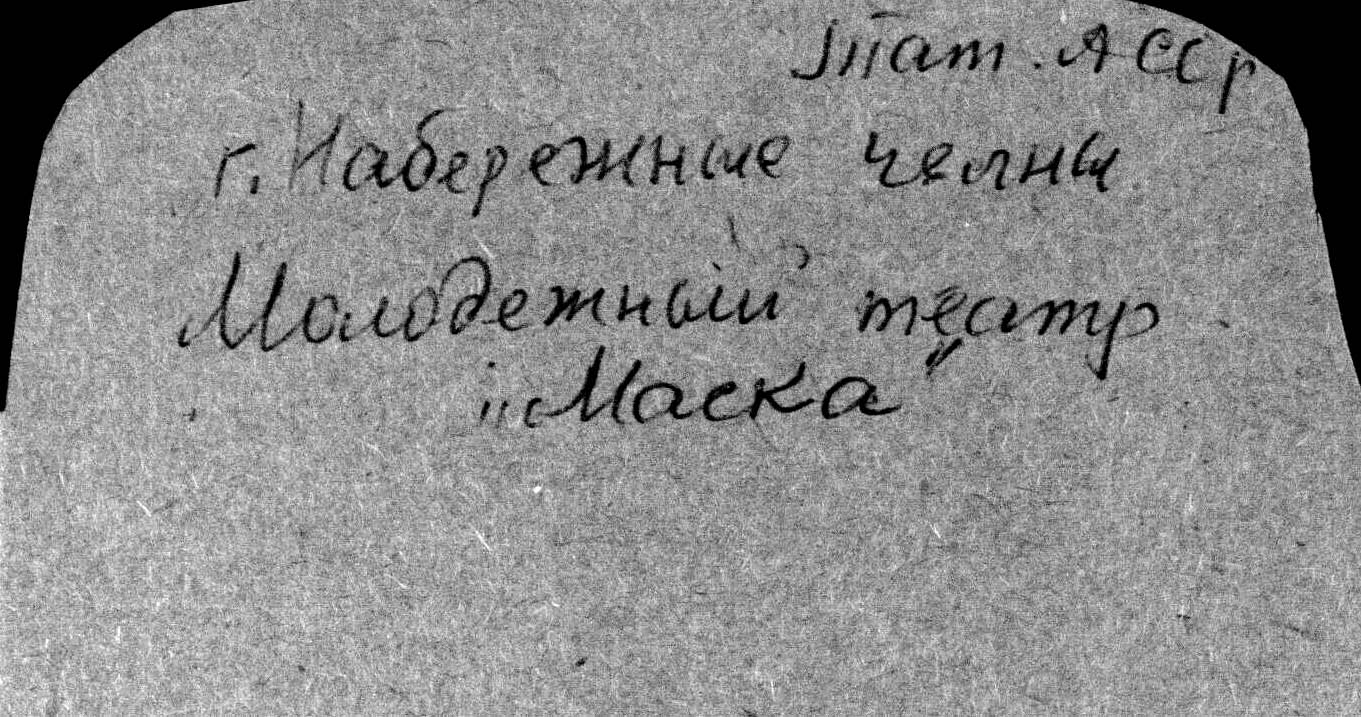 Тат. АССР
г. Набережные челны
Молодежный театр
„Маска"